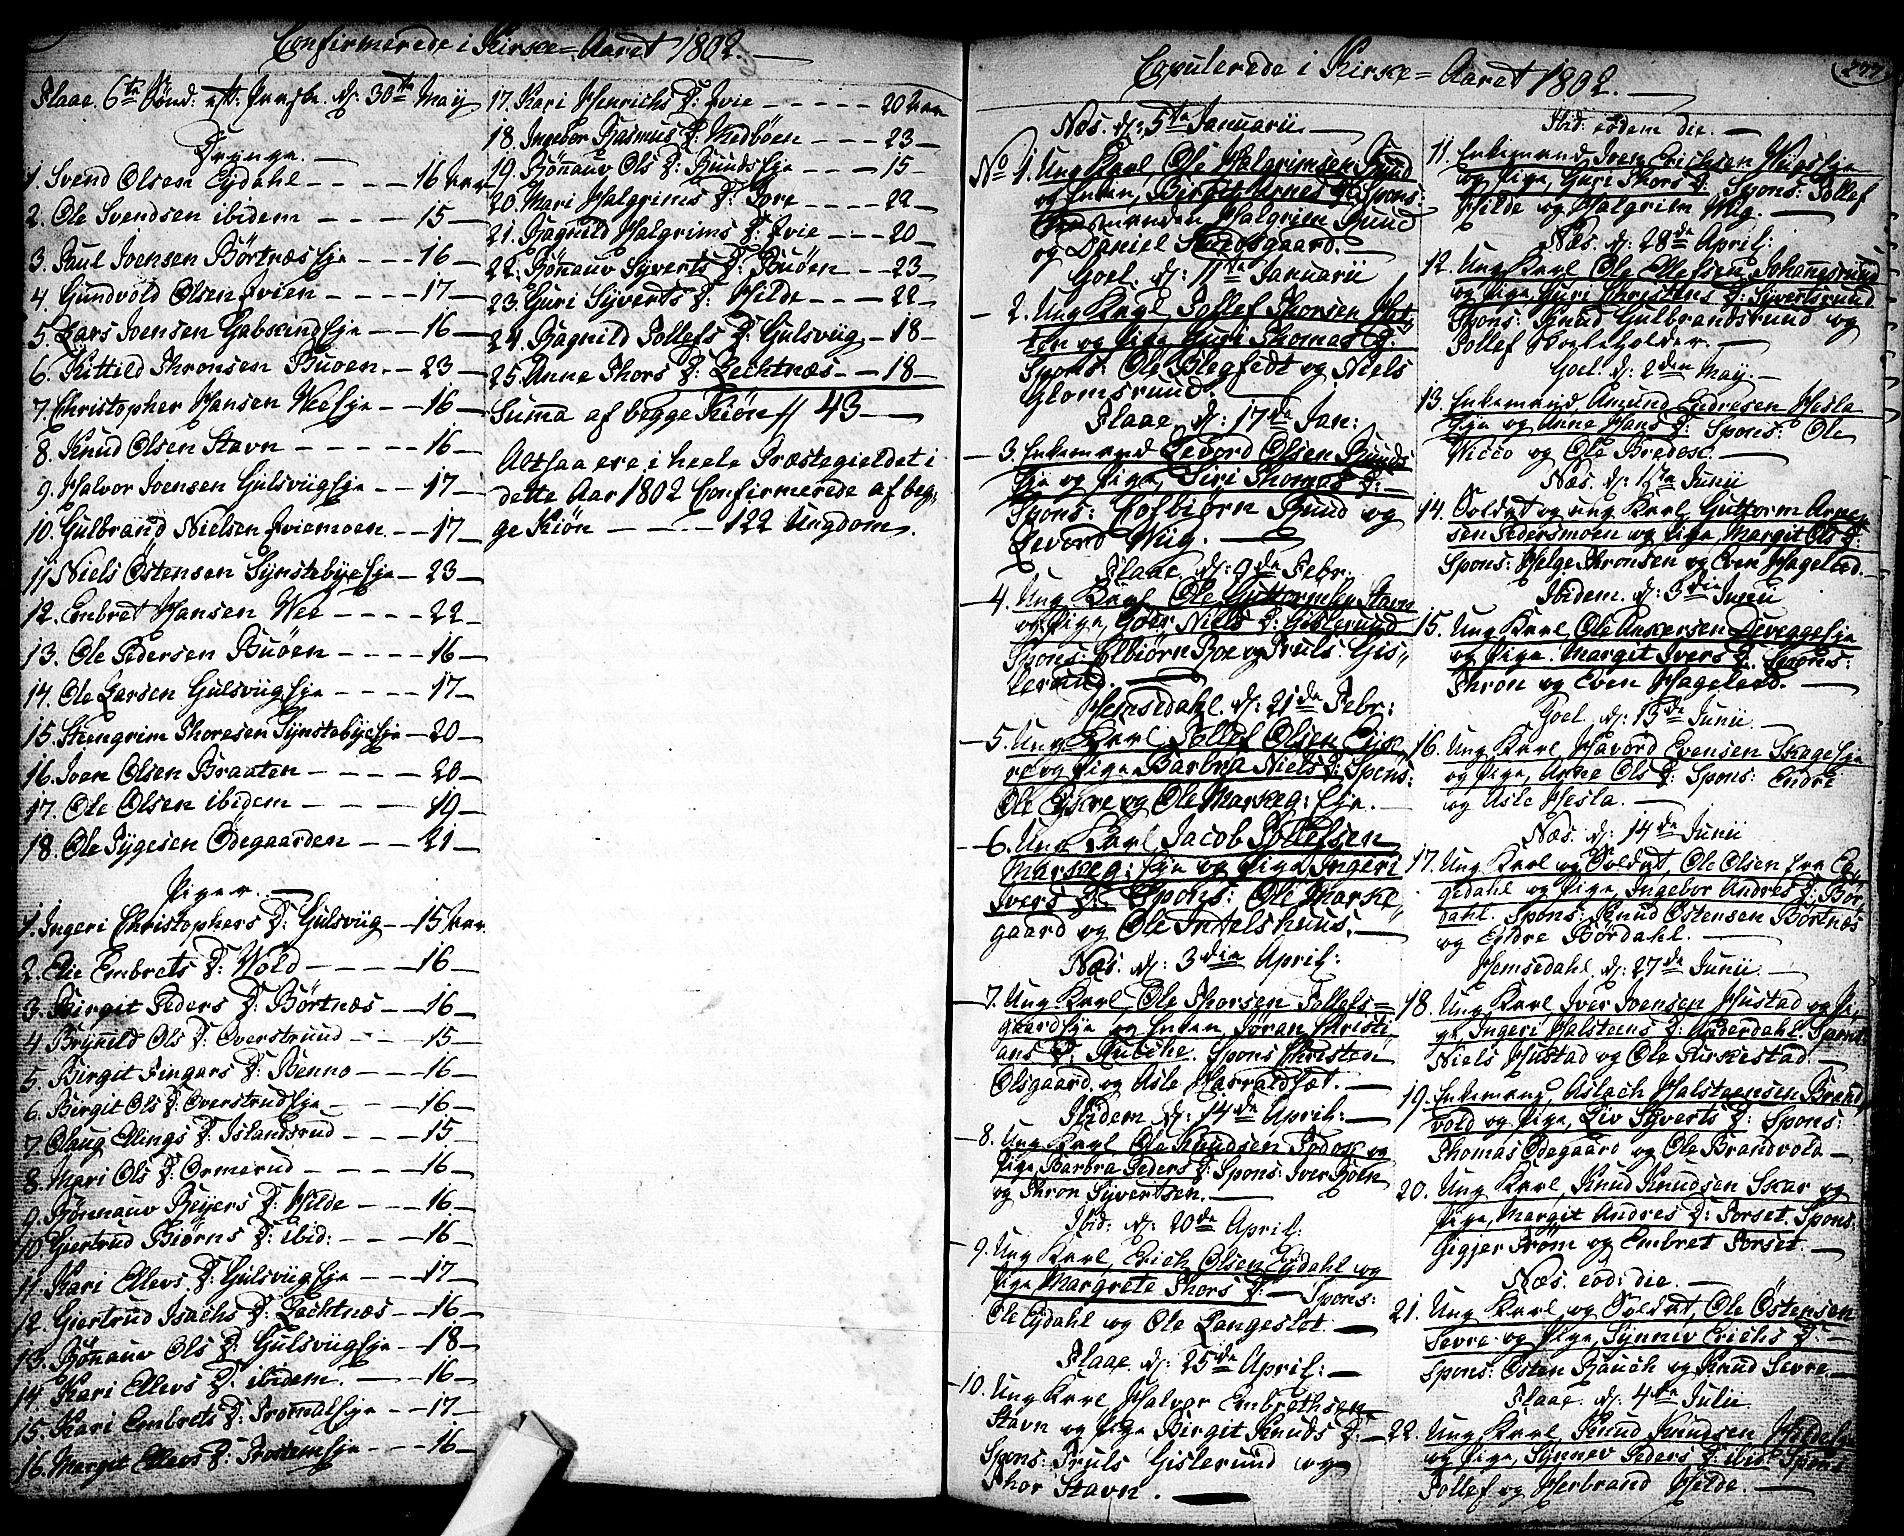 Confirmerede i Kirke=Aaret 1802.
Flaae. 6te Sønd: eft: Paaske d: 30te May
Drenge.
1. Svend Olsen Eydahl - - - - 16 Aar
2. Ole Svendsen ibidem - - - - 15
3. Paul Joensen Børtnæs Eje - - - 16
4. Gundvold Olsen Jvien - - - - 17
5. Lars Joensen Gabsrud Eje - - - 16
6. Kittild Thronsen Buøen - - 23
7. Christopher Hansen Wee Eje - - 16
8. Knud Olsen Stavn - - - - 16
9. Halvor Joensen Gulsviig Eje - - 17
10. Gulbrand Nielsen Jviemoen - - 17
11. Niels Østensen Synstebye Eje - 23
12. Embret Hansen Wee - - - - 22
13. Ole Pedersen Buøen - - - - 16
14. Ole Larsen Gulsviig Eje - - - 17
15. Steengrim Thoresen Synstebye Eje - 20
16. Joen Olsen Braaten - - - - 20
17. Ole Olsen ibidem - - - - 19
18. Ole Tygesen Ødegaarden - - 21
Piger.
1. Ingeri Christophers D: Gulsviig - - 15 Aar
2. Elie Embrets D: Wold - - - - 16
3. Birgit Peders D: Børtnæs - - 16
4. Brynild Ols D: Oversruud - - - 15
5. Birgit Fingars D: Benno - - - 16
6. Birgit Ols D: Oversrud Eje - - - 16
7. Olaug Ellings D: Islandsrud - - - 15
8. Mari Ols D: Ormerud - - - - 16
9. Bønnauv Reyers D: Hilde - - - 16
10. Giertrud Biørns D: ibid: - - - 16
11. Kari Ellevs D: Gulsviig Eje - - - 17
12. Giertrud Isachs D: Lechtnæs - - 16
13. Bønnauv Ols D: Gulsviig Eje - - 18
14. Kari Ellevs D: ibidem. - - - 16
15. Kari Embrets D: Trommald Eje - - 17
16. Margit Ellevs D: Eje - - - 16
17. Kari Henrichs D: Jvie - - - - - 20 Aar
18. Ingebor Rasmus D: Medbøen - - - 23
19. Bønnauv Ols D: Ruuds Eje - - - 15
20. Mari Halgrims D: Tore - - - - 22
21. Ragnild Halgrims D: Jvie - - - 20
22. Bønnauv Syverts D: Buøen - - 23
23. Guri Syverts D: Hilde - - - 22
24. Ragnild Tollefs D: Gulsviig - 18
25. Anne Thors D: Lechtnæs - - 18
Summa af begge Kiøn // 43
Altsaa ere i heele Præstegieldet i
dette Aar 1802 Confirmerede af beg-
ge Kiøn - - - - - 122 Ungdom.
Copulerede i Kirke=Aaret 1802.
Næs. d: 5te Januarii
No 1. Ung Karl, Ole Halgrimsen Ruud
og Enken, Birgit Arned D: Spons:
Halgrim Ruud
og Daniel
Goel. d: 11te Januarii
2. Ung Karl Tollef Thorsen
og Pige Guri Thomas D:
Spons: Ole Blegfedt og Niels
Glomsruud.
Flaae d: 17de Jan:
3. Enkemand Levord Olsen Ruuds
Eje og Pige, Siri Thomas D:
Spons: Colbiørn Ruud og
Levord Wiig.
Flaae. d: 9de Febr.
4. Ung Karl Ole Guttormsen Stavn
og Pige, Goer Niels D: Gislerund
Spons: Colbiørn Roe og Truls Gis-
lerund.
Hemsedahl. d: 21de Febr:
5. Ung Karl Tollef Olsen Eik
re og Pige Barbra Niels D: Spons:
Ole Ekre og Ole Markeg: Eje.
6. Ung Karl Jacob Tollefsen
Markeg: Eje og Pige Ingeri
Ivers D: Spons: Ole Marke-
gaard og Ole Intelshuus.
Næs. d: 3die April:
7. Ung Karl Ole Thorsen Tollefs=
gaard Eje og Enken Jøran Christi
ans D: Rubehe. Spons Christen
Olsgaard og Asle Harraldset.
Ibidem d: 14de April:
8. Ung Karl Ole Knudsen Fodok og
Pige Barbra Peders D: Spons: Iver Roen
og Thron Syvertsen.
Ibid: d: 20de April:
9. Ung Karl, Erich Olsen Eydahl og
Pige Margrete Thors D: Spons:
Ole Eydahl og Ole Langeslet.
Flaae. d: 25de April:
10. Ung Karl Halvor Embrethsen
Stavn og Pige Birgit Knuds D:
Spons: Truls Gislerund og
Thor Stavn.
Ibid: eodem die.
11. Enkemand Iven Erichsen Wiigs Eje
og Pige, Guri Thors D: Spons: Tollef
Hilde og Halgrim Wiig.
Næs. d: 28de April:
12. Ung Karl Ole Ellefsen Johangsruud
og Pige Guri Christens D: Syvertsruud
Spons: Knud Gulbrandsruud og
Tollef Skoleholder.
Goel. d: 2den May.
13. Enkemand, Amund Endresen Hesla
Eje og Anne Hans D: Spons: Ole
Wicco og Ole Bredese.
Næs. d: 1ste Junii
14. Soldat og ung Karl Guttorm Arne
sen Pedersmoen og Pige Margit Ols D:
Spons: Helge Thronsen og Even Hageled.
Ibidem. d: 3die Junii
15. Ung Karl Ole Ankersen Eje
og Pige. Margit Ivers D. Spons:
Thron og Even Hageled.
Goel. d: 13de Junii
16. Ung Karl, Havord Evensen Skage Eje
og Pige, Anne Ols D: Spons: Endre
og Asle Hesla.
Næs. d: 14de Junii
17. Ung Karl og Soldat, Ole Olsen fra Eg
gedahl og Pige, Ingebor Andres D: Bør
dahl. Spons: Knud Østensen Børtnæs
og Endre Børdahl.
Hemsedahl d: 27de Junii
18. Ung Karl Iver Joensen Hustad og Pi
ge Ingeri Halsteens D: Underdahl. Spons:
Niels Hustad og Ole Kirkestad
19. Enkemand, Aslach Halsteensen Brand
vold og Pige, Liv Syverts D: Spons:
Thomas Ødegaard og Ole Brandvold
20. Ung Karl, Knud Knudsen Skar og
Pige, Margit Andres D: Torset. Spons:
Gigjer Trøm og Embret Torset.
Næs. eod: die.
21. Ung Karl og Soldat, Ole Østensen
Sevre og Pige, Synnev Erichs D:
Spons: Østen Rauch og Knud Sevre.
Flaae d: 4de Julii
22. Ung Karl, Knud Knudsen
og Pige, Synnev Peders D: ibid Spons
Tollef og Herbrand Hilde.